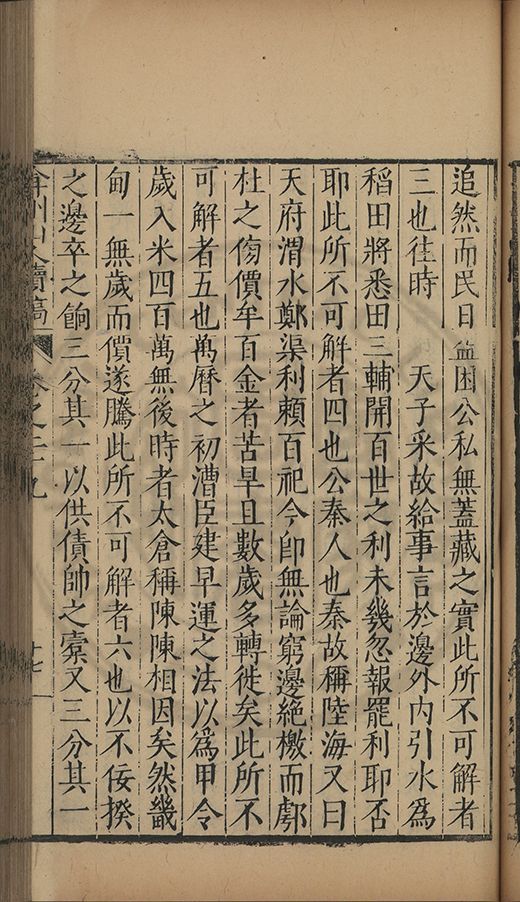 追然而民日益困公私無蓋藏之實此所不可解者
三也往時　天子采故給事言於邊外内引水為
稻田將悉田三輔開百世之利未幾忽報罷利耶否
耶此所不可解者四也公秦人也秦故稱陸海又曰
天府渭水鄭渠利賴百祀今即無論窮邊絶檄而鄠
杜之傷價牟百金者苦旱且數歲多轉徙矣此所不
可解者五也萬曆之初漕臣建早運之法以爲甲令
歲入米四百萬無後時者太倉稱陳陳相因矣然畿
甸一無歲而價遂騰此所不可解者六也以不佞揆
之邊卒之餉三分其一以供債帥之橐又三分其一
弇州山人續稿
卷之二十九
十七